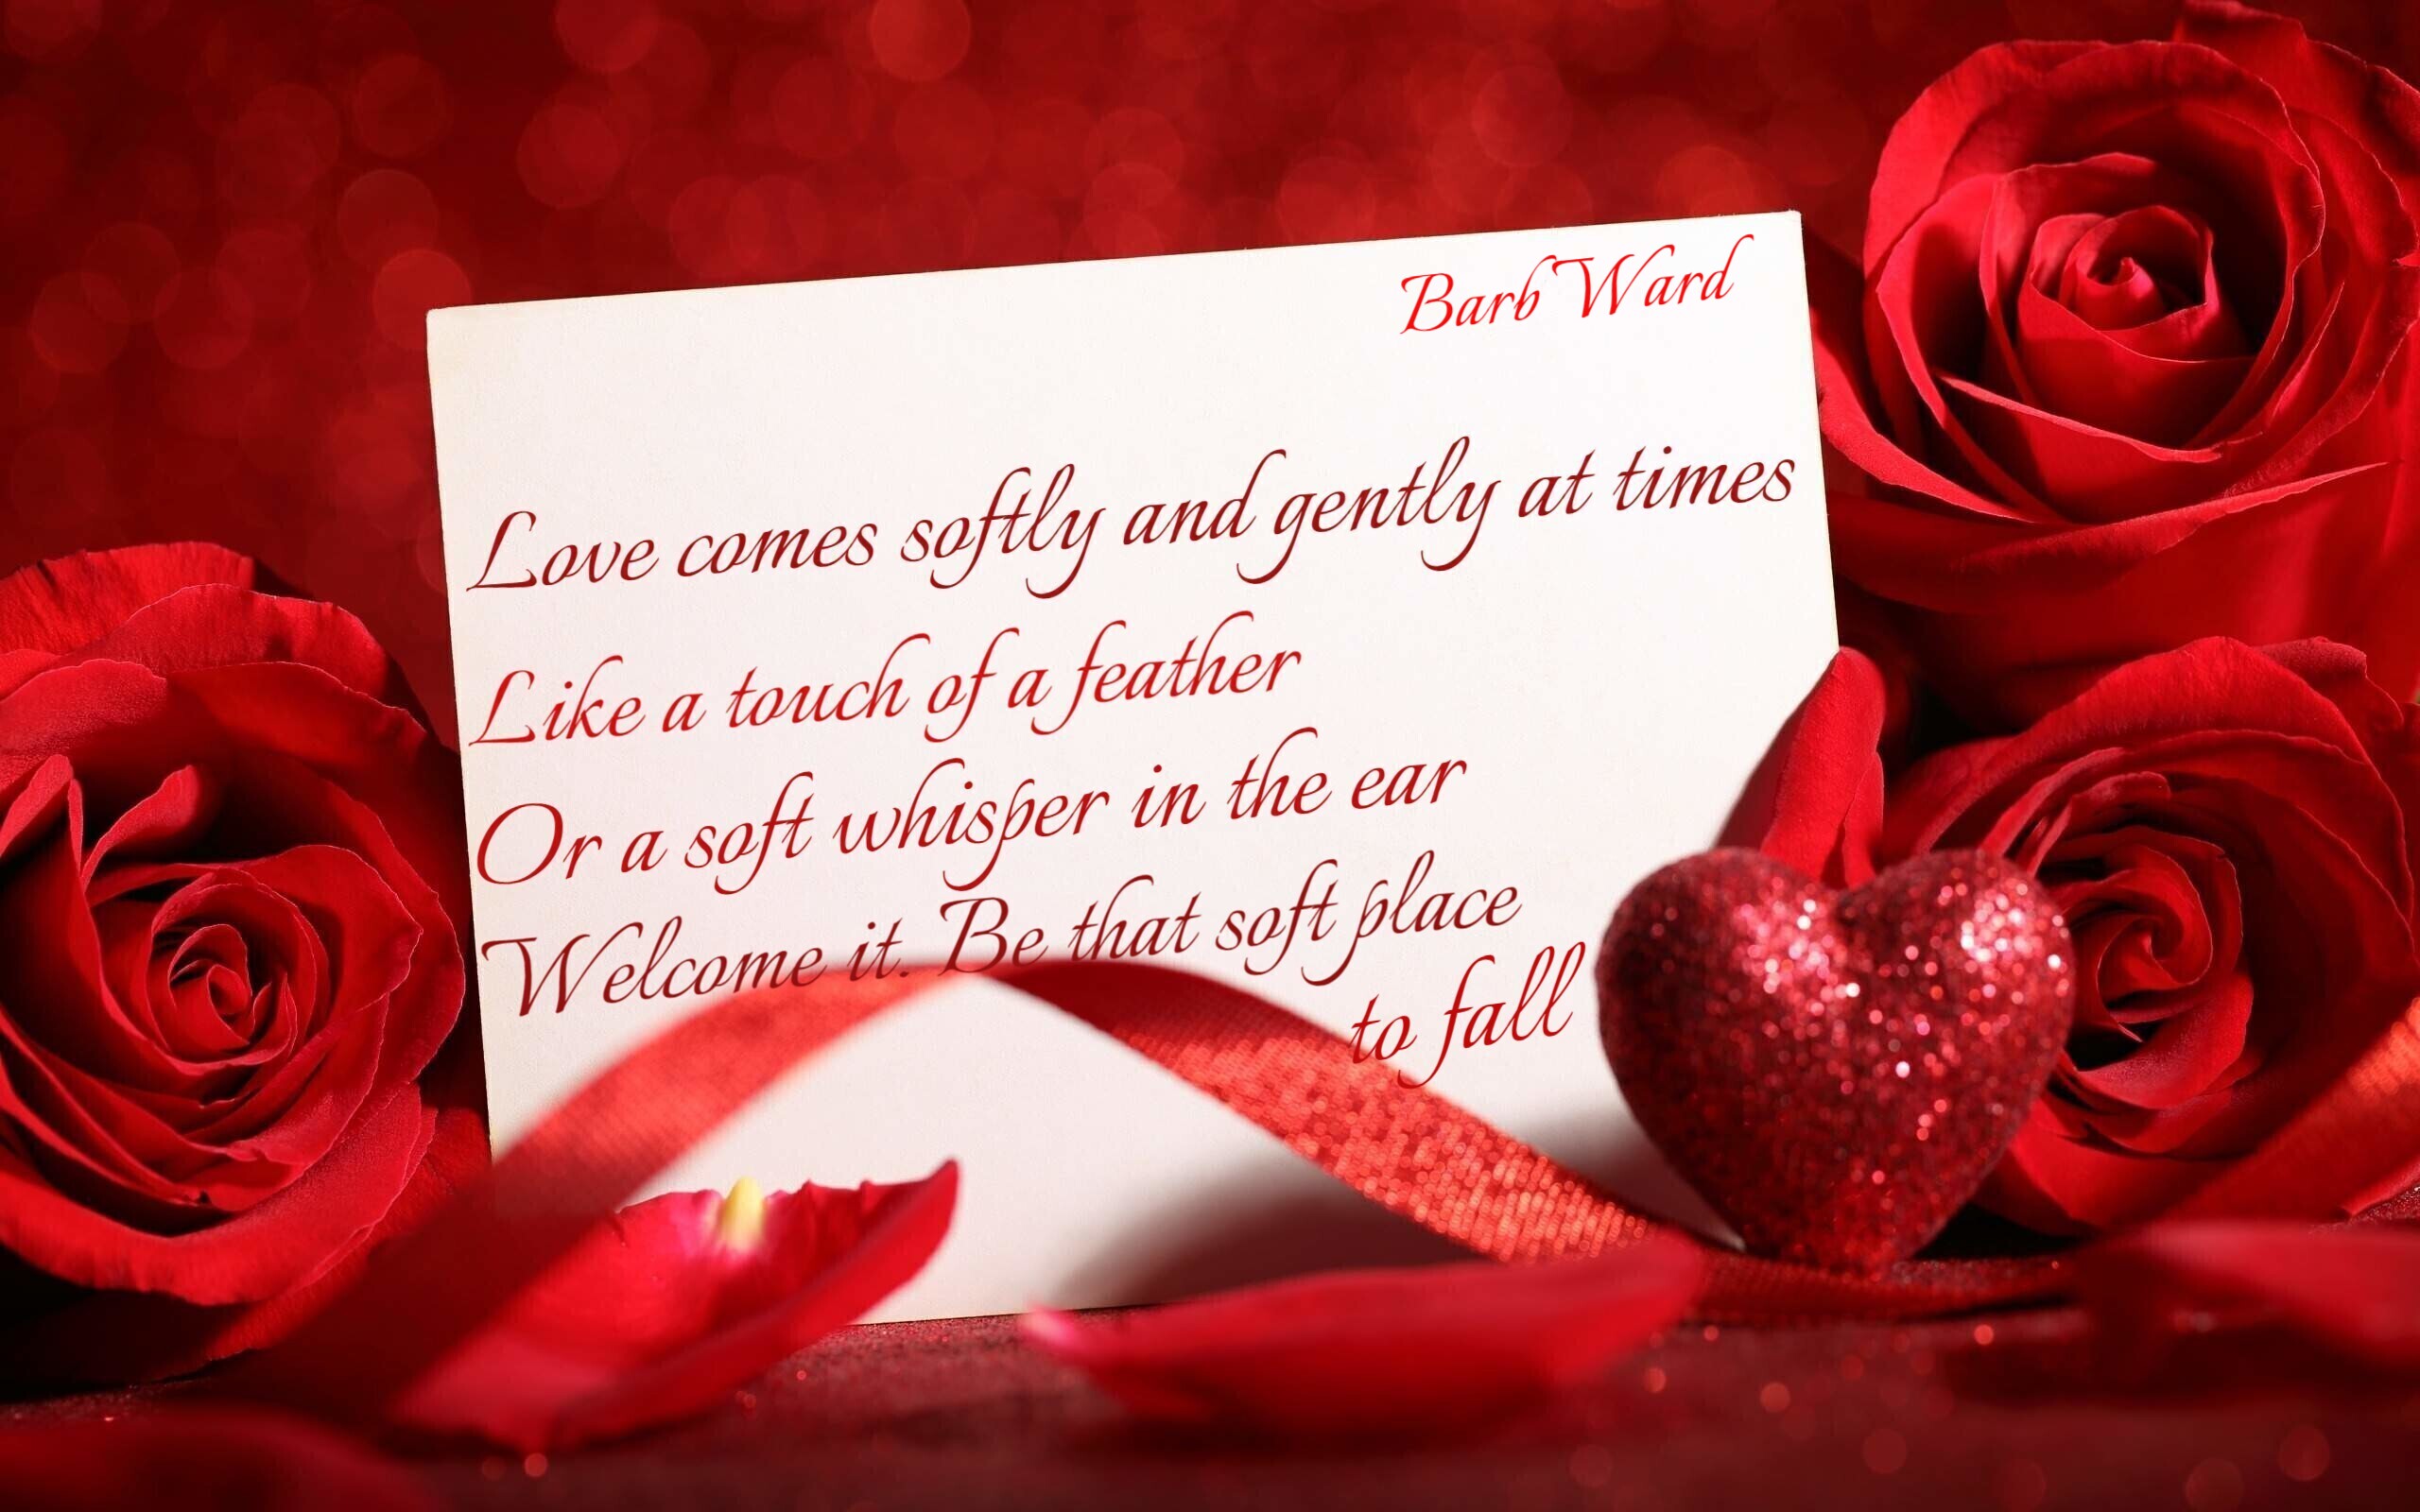 Barb Ward
Love comes softly and gently at times
Like a touch of a feather
Or a soft whisper in the ear
Welcome it. Be that soft place
to fall